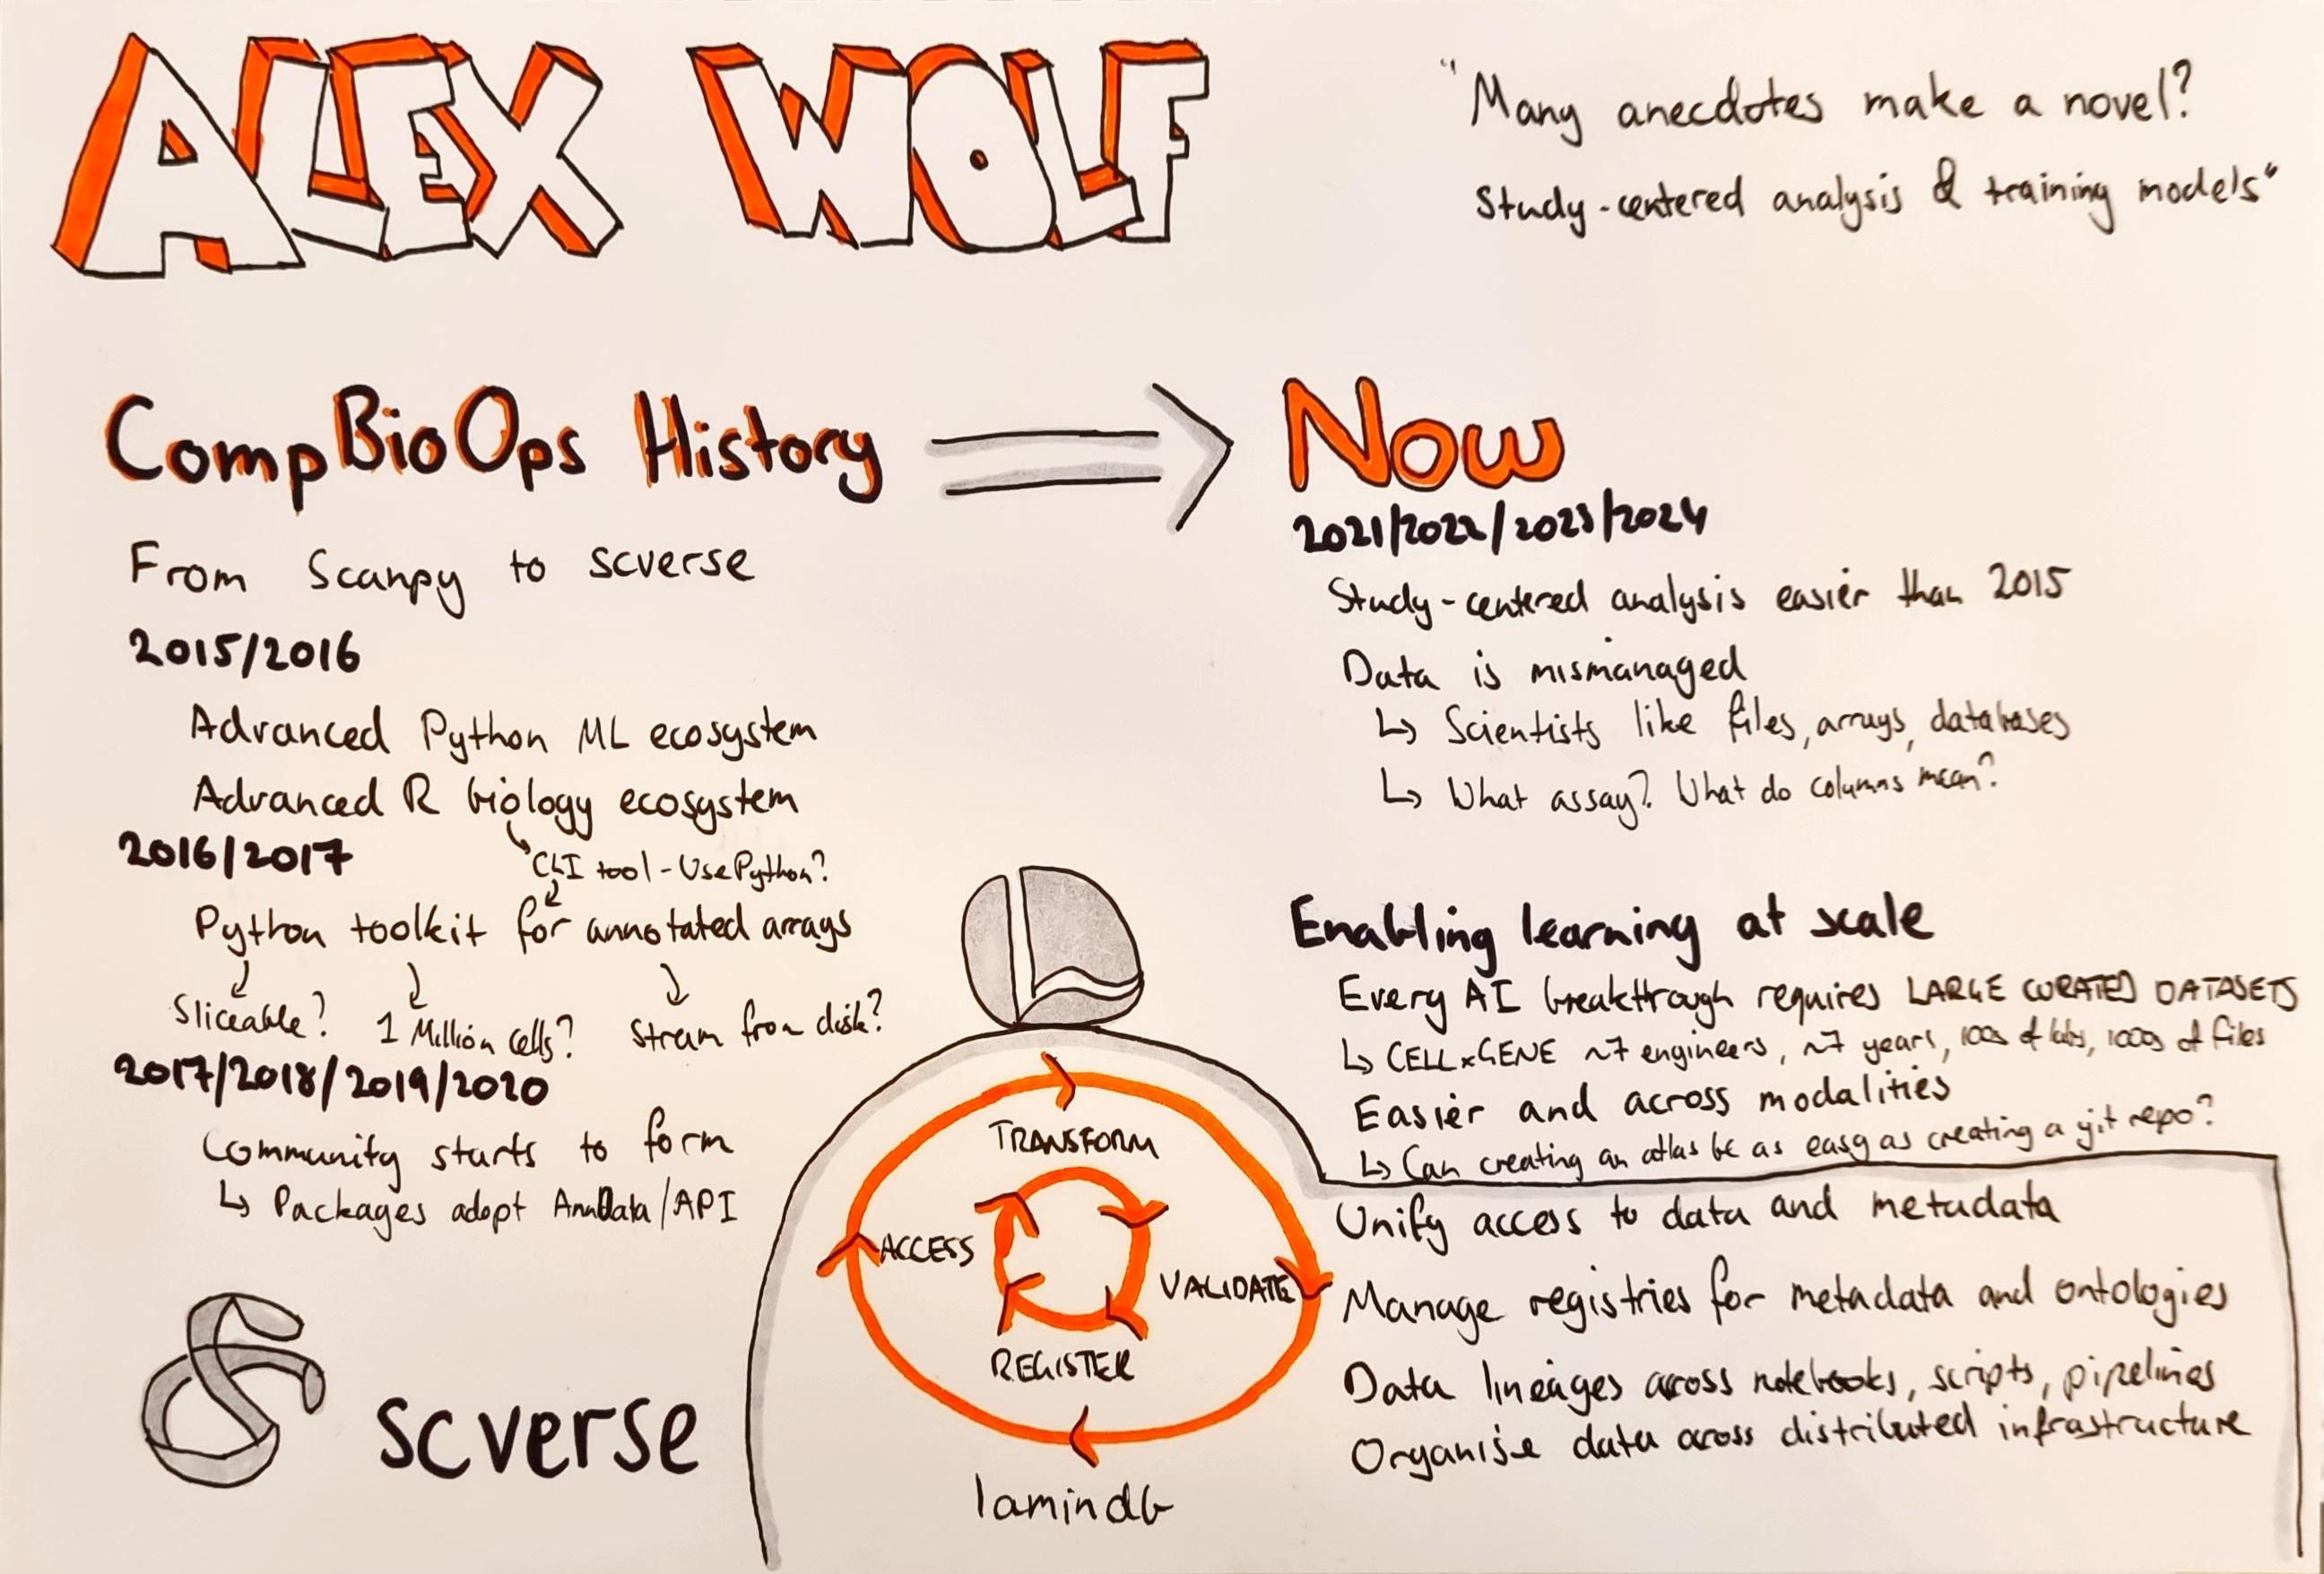 ALEX WOLF
"Many anecdotes make a novel?
Study-centered analysis & training models"
CompBioOps History
From Scanpy to scverse
2015/2016
Advanced Python ML ecosystem
Advanced R biology ecosystem
2016/2017
CLI tool - Use Python?
Python toolkit for annotated arrays
Sliceable? 1 Million cells? Stream from disk?
2017/2018/2019/2020
Community starts to form
↳ Packages adopt AnnData/API
scverse
Now
2021/2022/2023/2024
Study-centered analysis easier than 2015
Data is mismanaged
↳ Scientists like files, arrays, databases
↳ What assay? What do columns mean?
Enabling learning at scale
Every AI breakthrough requires LARGE CURATED DATASETS
↳ CELLxGENE ~7 engineers, ~7 years, 100s of labs, 1000s of files
Easier and across modalities
↳ Can creating an atlas be as easy as creating a git repo?
Unify access to data and metadata
Manage registries for metadata and ontologies
Data lineages across notebooks, scripts, pipelines
Organise data across distributed infrastructure
TRANSFORM
ACCESS
VALIDATE
REGISTER
lamindb